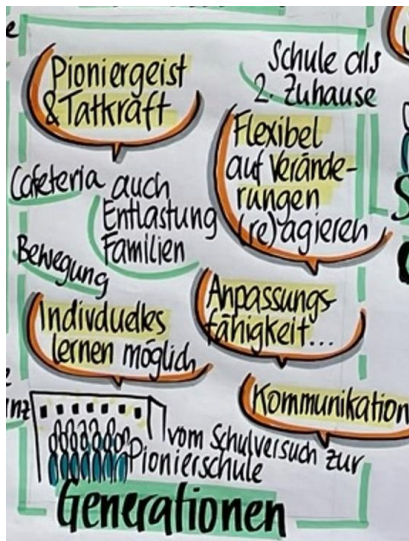 Pioniergeist
& Tatkraft
Schule als
2. Zuhause
Flexibel
auf Verände-
rungen
(re)agieren
Cafeteria auch
Entlastung
Familien
Bewegung
Anpassungs-
fähigkeit...
Indivduelles
lernen möglich
Kommunikation
vom Schulversuch zur
Pionierschule
Generationen